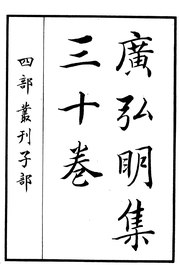 廣弘明集
三十卷
四部叢刊子部